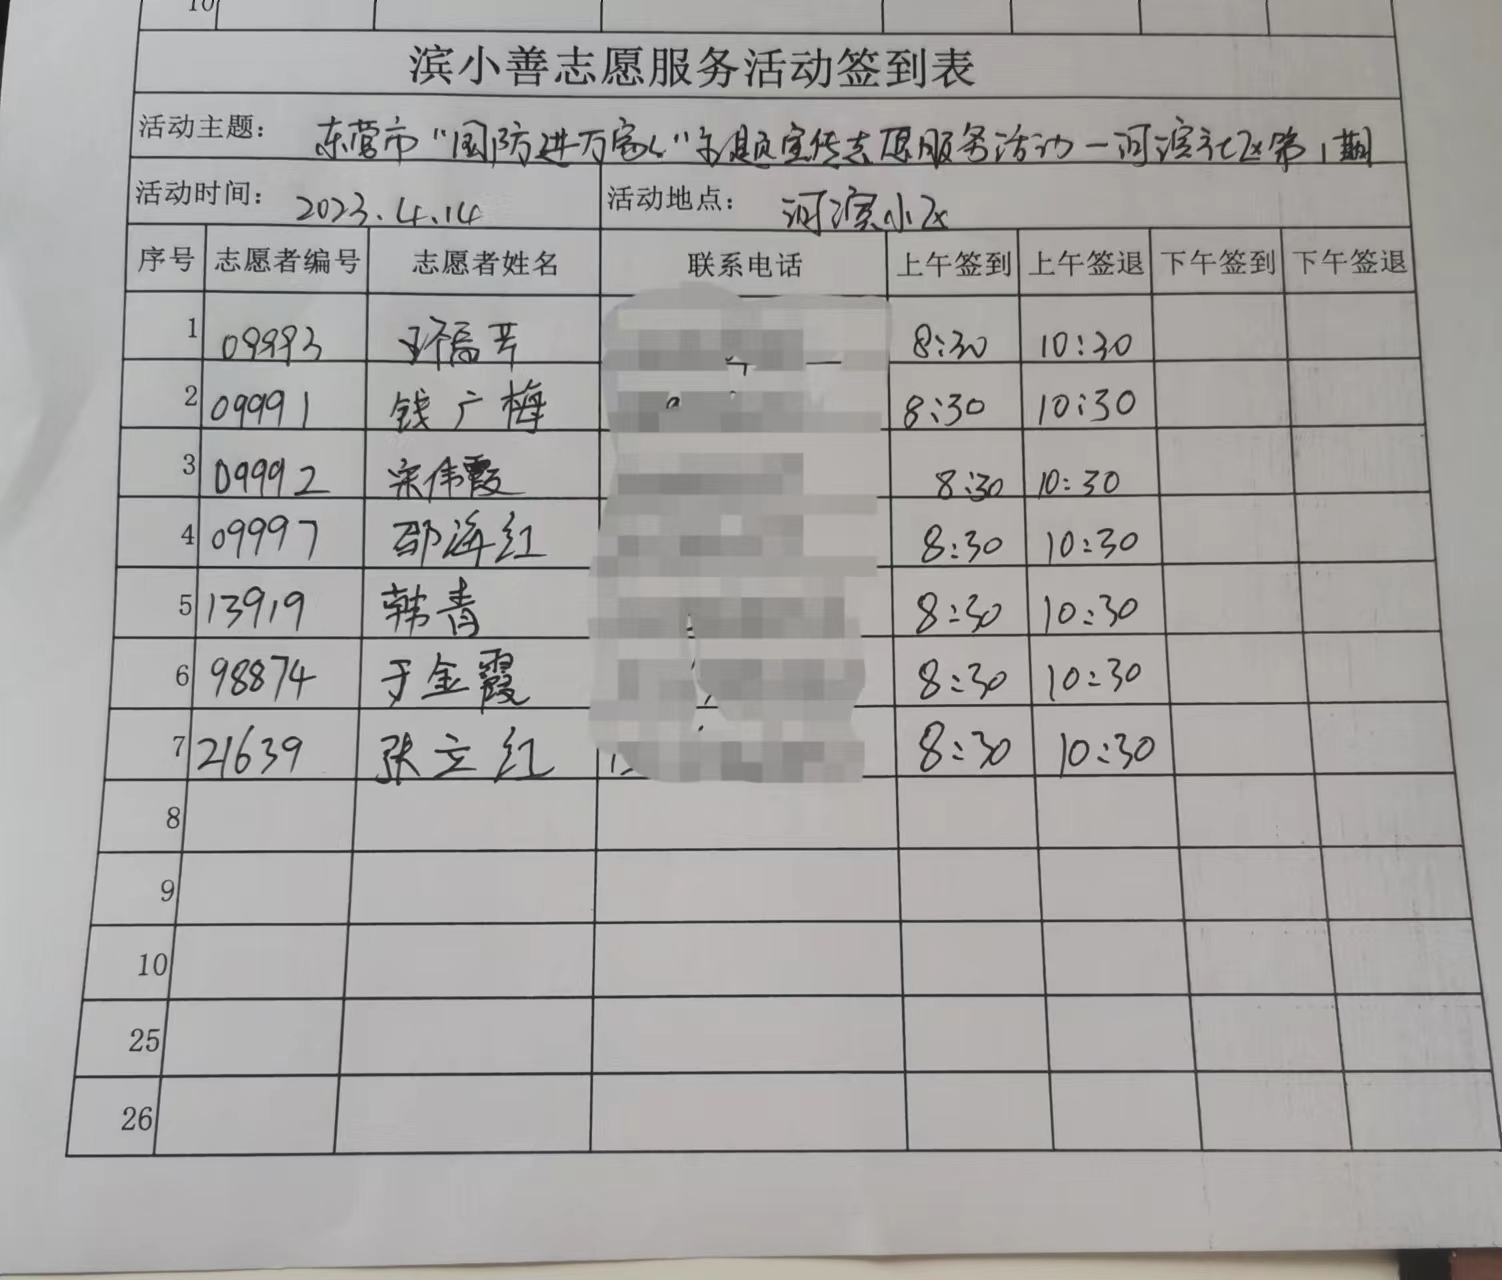 10
滨小善志愿服务活动签到表
活动主题： 东营市“国防进万家”主题宣传志愿服务活动—河滨社区第1期
活动时间： 2023.4.14 活动地点： 河滨小区
序号 志愿者编号 志愿者姓名 联系电话 上午签到 上午签退 下午签到 下午签退
1 09993 环福芹 8:30 10:30
2 09991 钱广梅 8:30 10:30
3 09992 宋伟霞 8:30 10:30
4 09997 邵海红 8:30 10:30
5 13919 韩青 8:30 10:30
6 98874 于金霞 8:30 10:30
7 21639 张立红 8:30 10:30
8
9
10
25
26